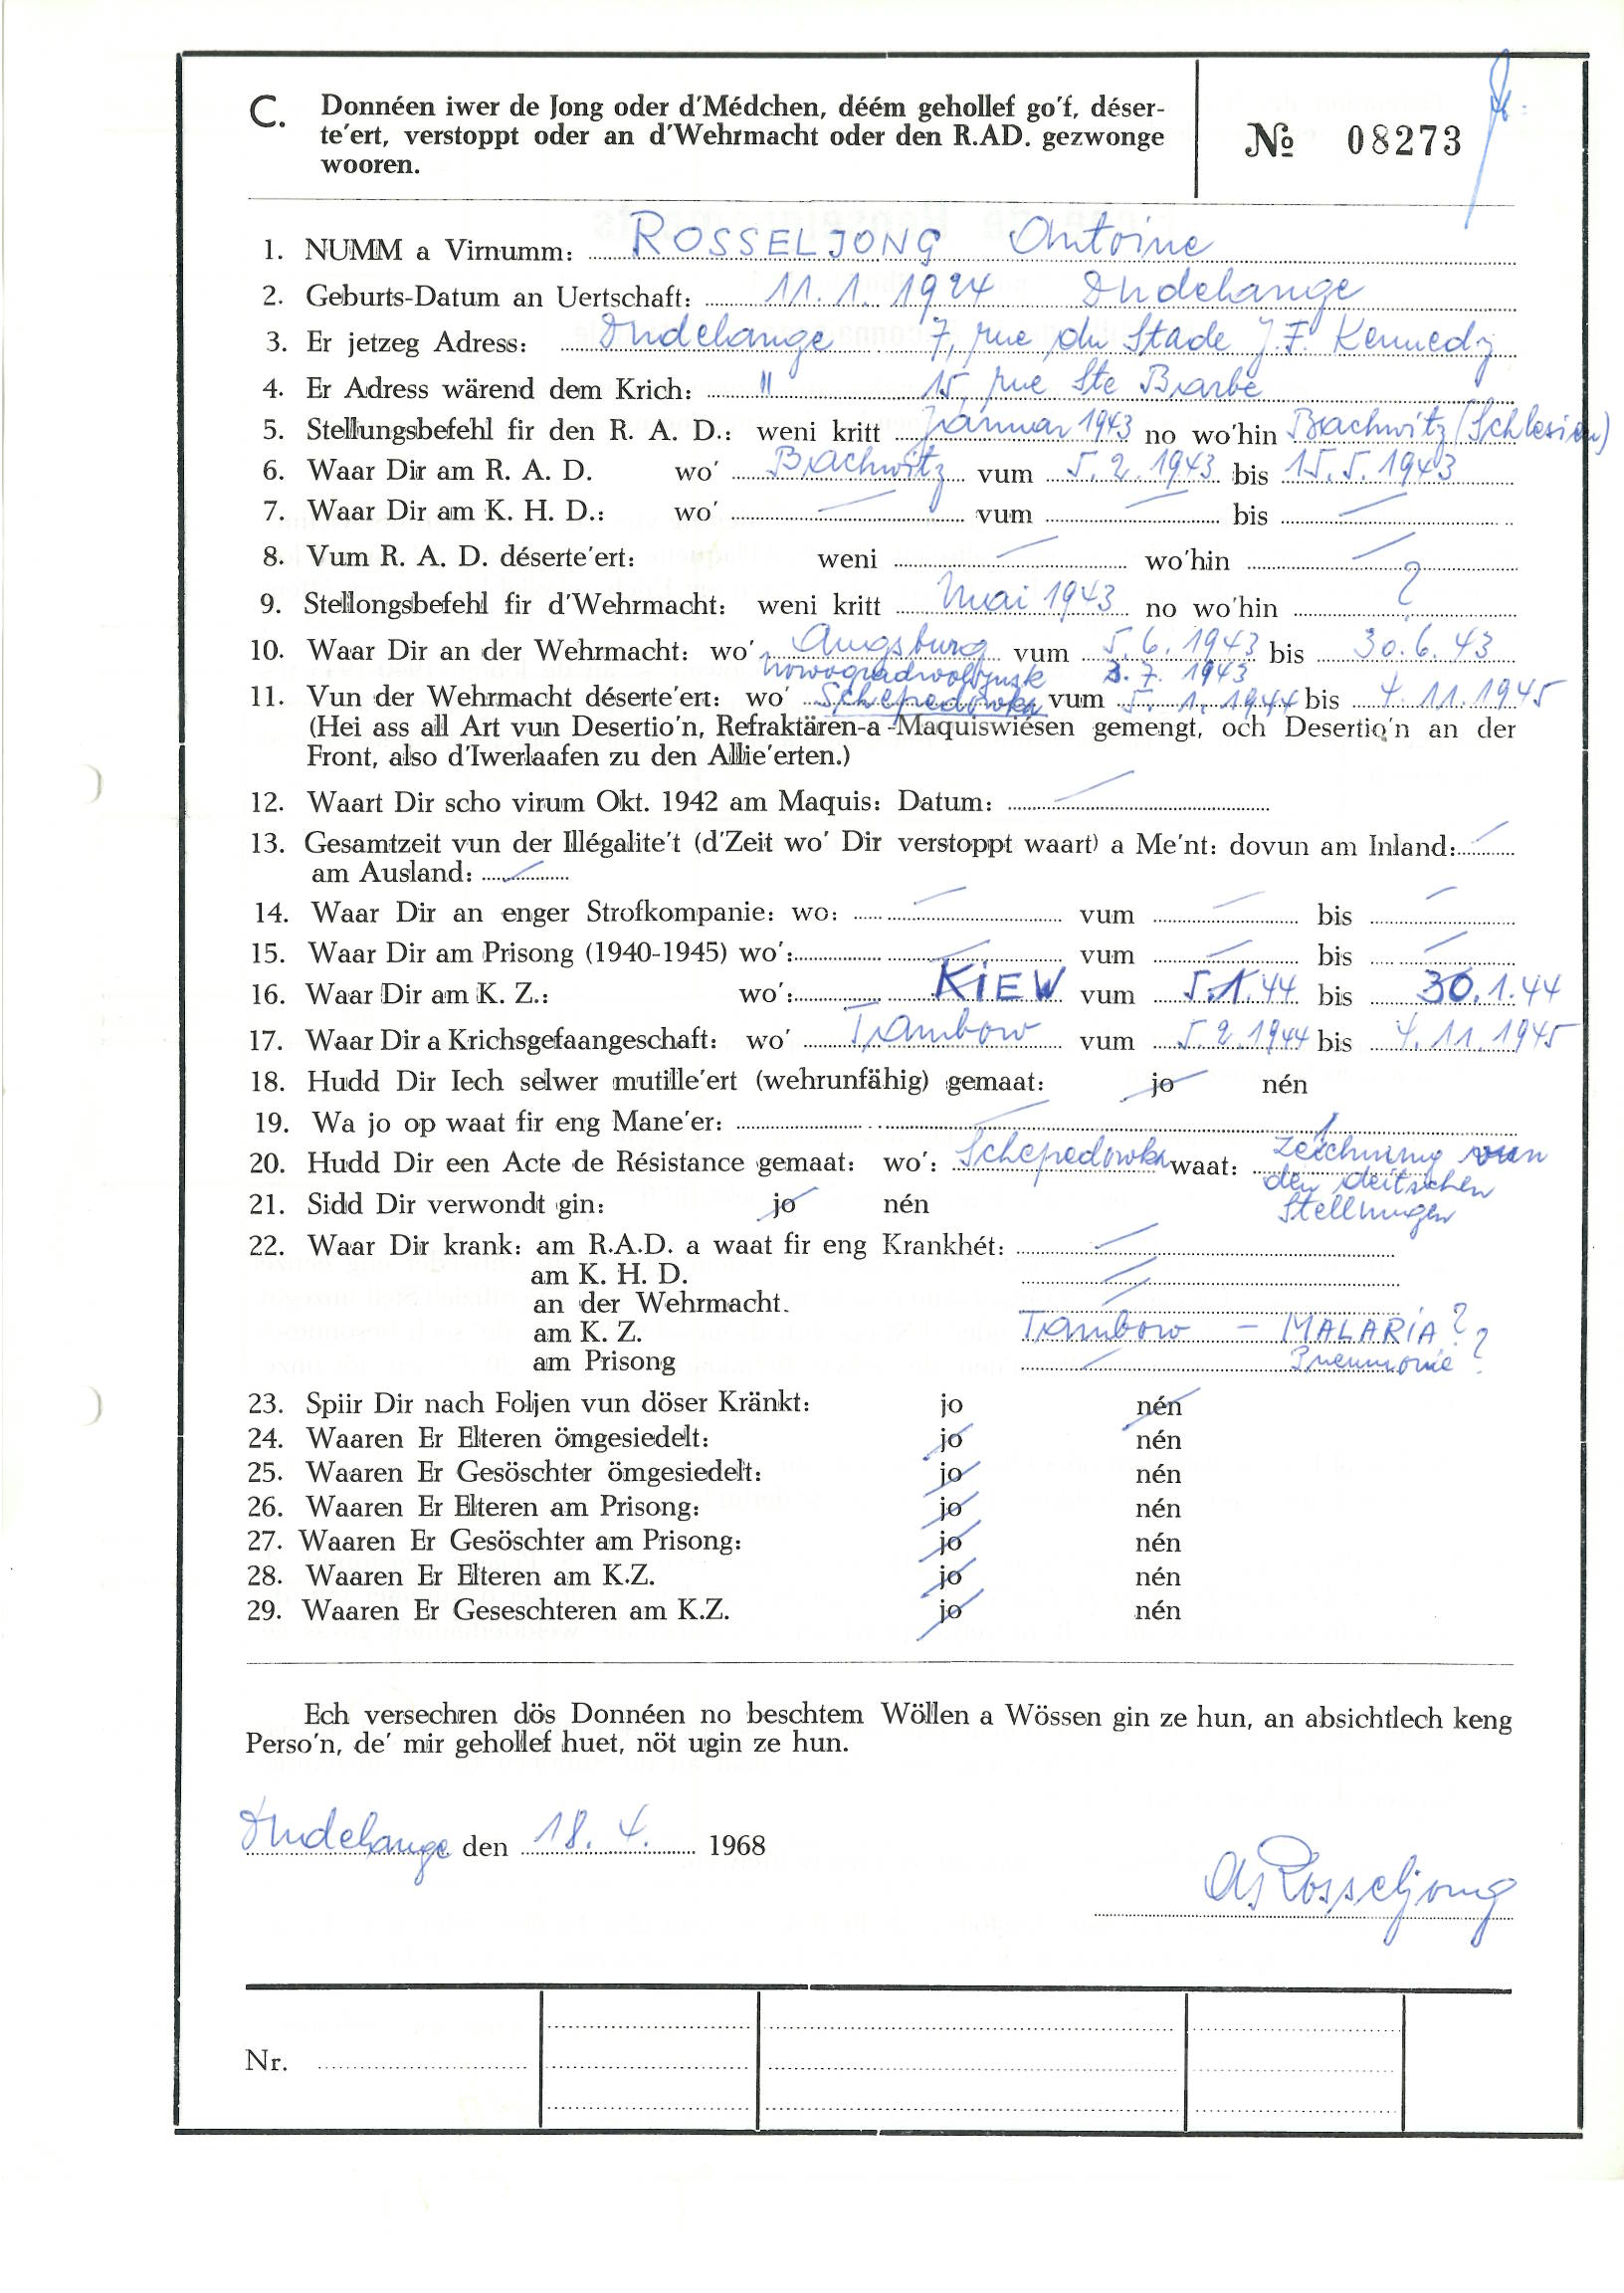 C. Donnéen iwer de Jong oder d'Médchen, déém gehollef go'f, déser-
te'ert, verstoppt oder an d'Wehrmacht oder den R.AD. gezwonge
wooren.
№ 08273
1. NUMM a Virnumm: ROSSELJONG Antoine
2. Geburts-Datum an Uertschaft: 11.1.1924 Dudelange
3. Er jetzeg Adress: Dudelange 7, rue du Stade J.F. Kennedy
4. Er Adress wärend dem Krich: " 15, rue Ste Barbe
5. Stellungsbefehl fir den R. A. D.: weni kritt Januar 1943 no wo'hin Brachwitz (Schlesien)
6. Waar Dir am R. A. D. wo' Brachwitz vum 5.2.1943 bis 15.5.1943
7. Waar Dir am K. H. D.: wo' — vum — bis —
8. Vum R. A. D. déserte'ert: weni — wo'hin —
9. Stellongsbefehl fir d'Wehrmacht: weni kritt Mai 1943 no wo'hin ?
10. Waar Dir an der Wehrmacht: wo' Augsburg vum 5.6.1943 bis 30.6.43
nowogradwolynsk 3.7.1943
11. Vun der Wehrmacht déserte'ert: wo' Schepedowka vum 5.1.1944 bis 4.11.1945
(Hei ass all Art vun Desertio'n, Refraktären-a-Maquiswiésen gemengt, och Desertio'n an der
Front, also d'Iwerlaafen zu den Allie'erten.)
12. Waart Dir scho virum Okt. 1942 am Maquis: Datum: —
13. Gesamtzeit vun der Illégalite't (d'Zeit wo' Dir verstoppt waart) a Me'nt: dovun am Inland: —
am Ausland: —
14. Waar Dir an enger Strofkompanie: wo: — vum — bis —
15. Waar Dir am Prisong (1940-1945) wo': — vum — bis —
16. Waar Dir am K. Z.: wo': KIEW vum 5.1.44 bis 30.1.44
17. Waar Dir a Krichsgefaangeschaft: wo' Tambow vum 5.2.1944 bis 4.11.1945
18. Hudd Dir Iech selwer mutille'ert (wehrunfähig) gemaat: jo nén
19. Wa jo op waat fir eng Mane'er: —
20. Hudd Dir een Acte de Résistance gemaat: wo': Schepedowka waat: Zeichnung vun
den deitschen
21. Sidd Dir verwondt gin: jo nén Stellungen
22. Waar Dir krank: am R.A.D. a waat fir eng Krankhét: —
am K. H. D. —
an der Wehrmacht. —
am K. Z. Tambow – MALARIA ?
am Prisong — Pneumonie ?
23. Spiir Dir nach Foljen vun döser Kränkt: jo nén
24. Waaren Er Elteren ömgesiedelt: jo nén
25. Waaren Er Gesöschter ömgesiedelt: jo nén
26. Waaren Er Elteren am Prisong: jo nén
27. Waaren Er Gesöschter am Prisong: jo nén
28. Waaren Er Elteren am K.Z. jo nén
29. Waaren Er Geseschteren am K.Z. jo nén
Ech versechren dös Donnéen no beschtem Wöllen a Wössen gin ze hun, an absichtlech keng
Perso'n, de' mir gehollef huet, nöt ugin ze hun.
Dudelange den 18. 4. 1968
A Rosseljong
Nr.